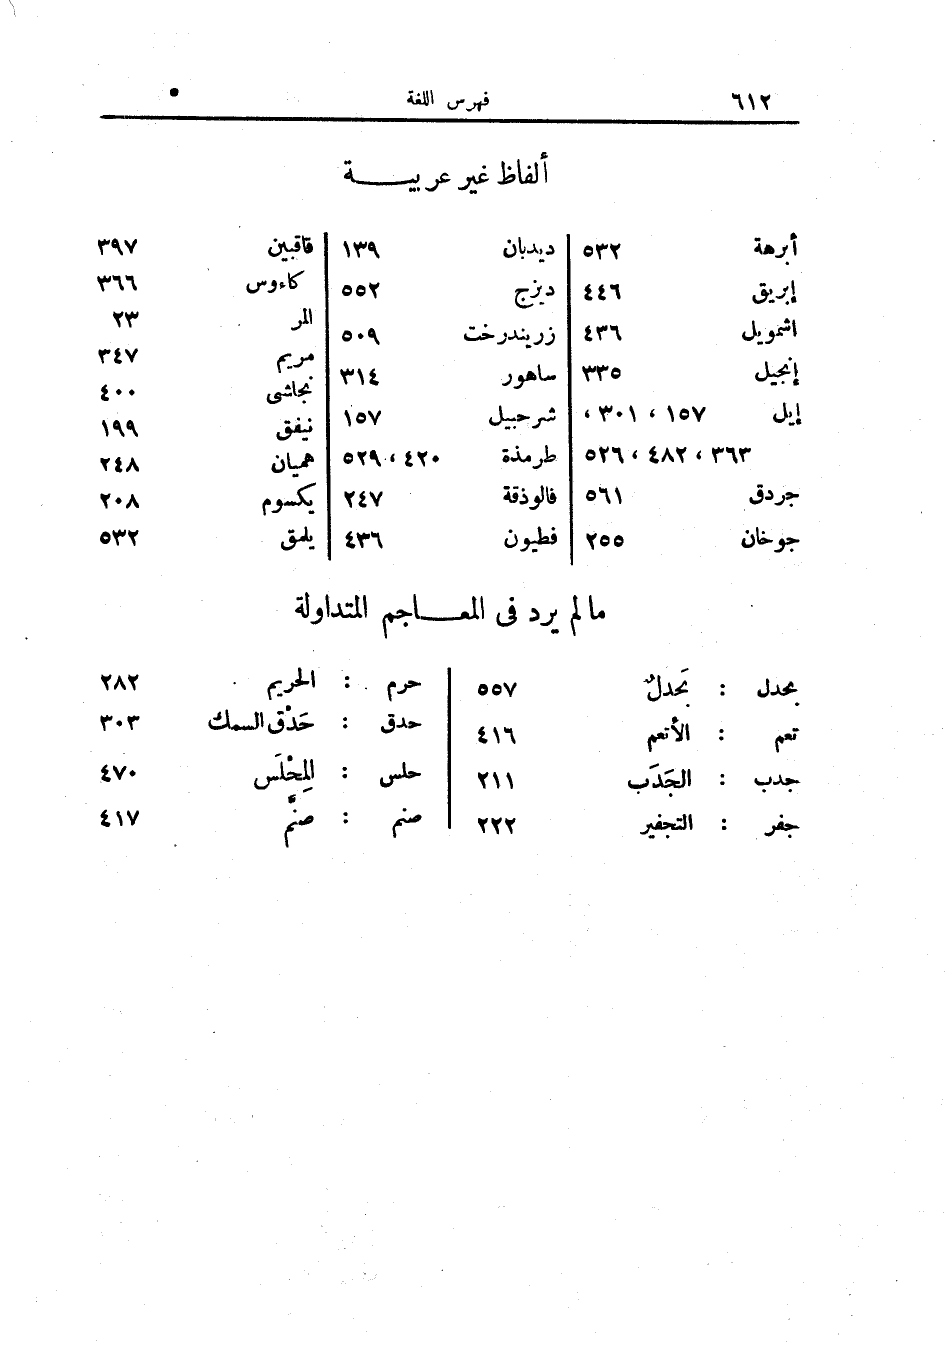 ٦١٢
فهرس اللغة
ألفاظ غير عربيـــة
أبرهة ٥٣٢
إبريق ٤٤٦
اشمويل ٤٣٦
إنجيل ٣٣٥
إيل ١٥٧ ، ٣٠١ ،
٣٦٣ ، ٤٨٢ ، ٥٢٦
جردق ٥٦١
جوخان ٢٥٥
ديدبان ١٣٩
ديزج ٥٥٢
زريندرخت ٥٠٩
ساهور ٣١٤
شرحبيل ١٥٧
طرمذة ٤٢٠ ، ٥٢٩
فالوذقة ٢٤٧
فطيون ٤٣٦
قاقبين ٣٩٧
كاءوس ٣٦٦
المر ٢٣
مريم ٣٤٧
نجاشى ٤٠٠
نيفق ١٩٩
هميان ٢٤٨
يكسوم ٢٠٨
يلمق ٥٣٢
مالم يرد فى المعـــاجم المتداولة
بحدل : بَحدلٌ ٥٥٧
تعم : الأتعم ٤١٦
جدب : الجَدَب ٢١١
جفر : التجفير ٢٢٢
حرم : الحريم ٢٨٢
حدق : حَدْق السمك ٣٠٣
حلس : المِحْلَس ٤٧٠
صنم : صنَّم ٤١٧